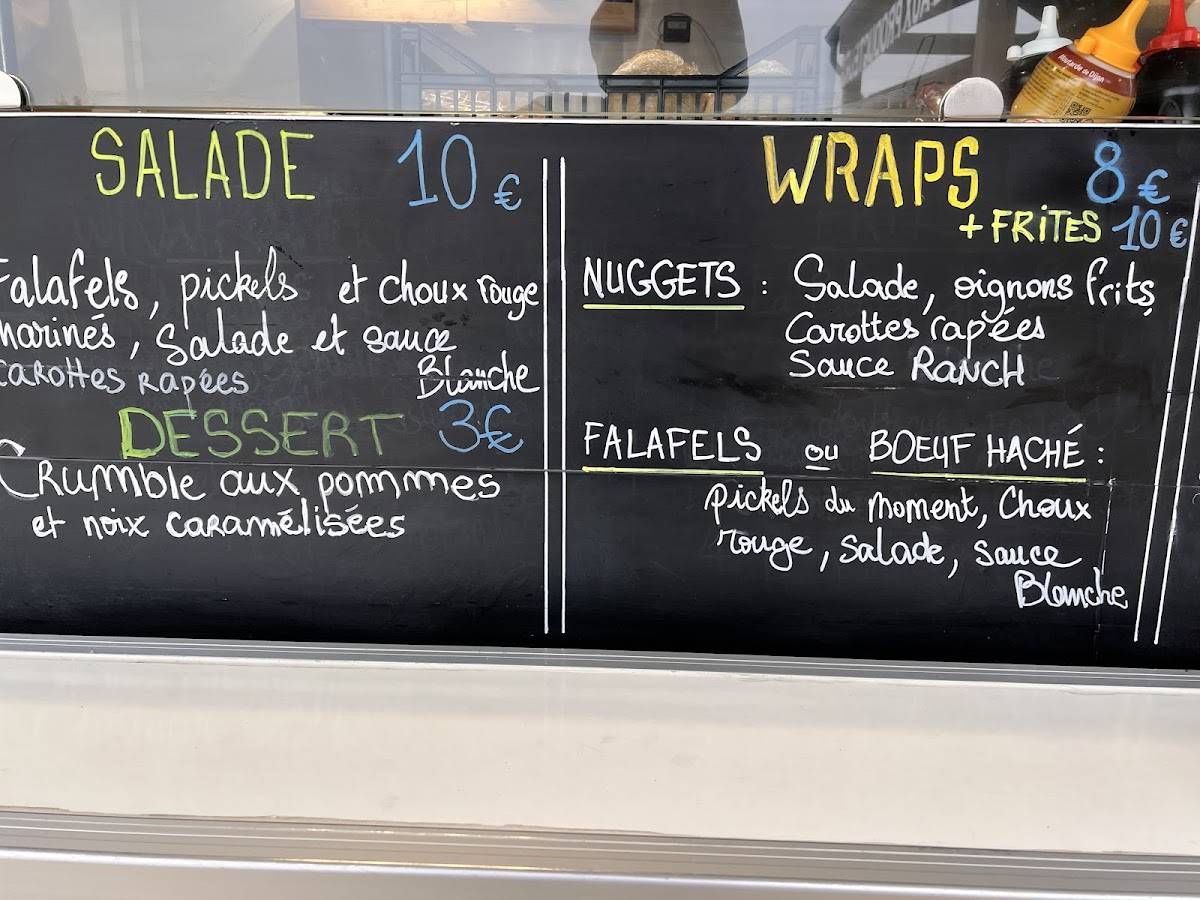 SALADE 10 €
Falafels, pickels et choux rouge
marinés, Salade et sauce
Blanche
carottes rapées
DESSERT 3€
Crumble aux pommes
et noix caramélisées
WRAPS 8 €
+ FRITES 10 €
NUGGETS : Salade, oignons frits
Carottes rapées
Sauce RANCH
FALAFELS ou BOEUF HACHÉ :
pickels du moment, Choux
rouge, salade, sauce
Blanche
Moutarde de Dijon